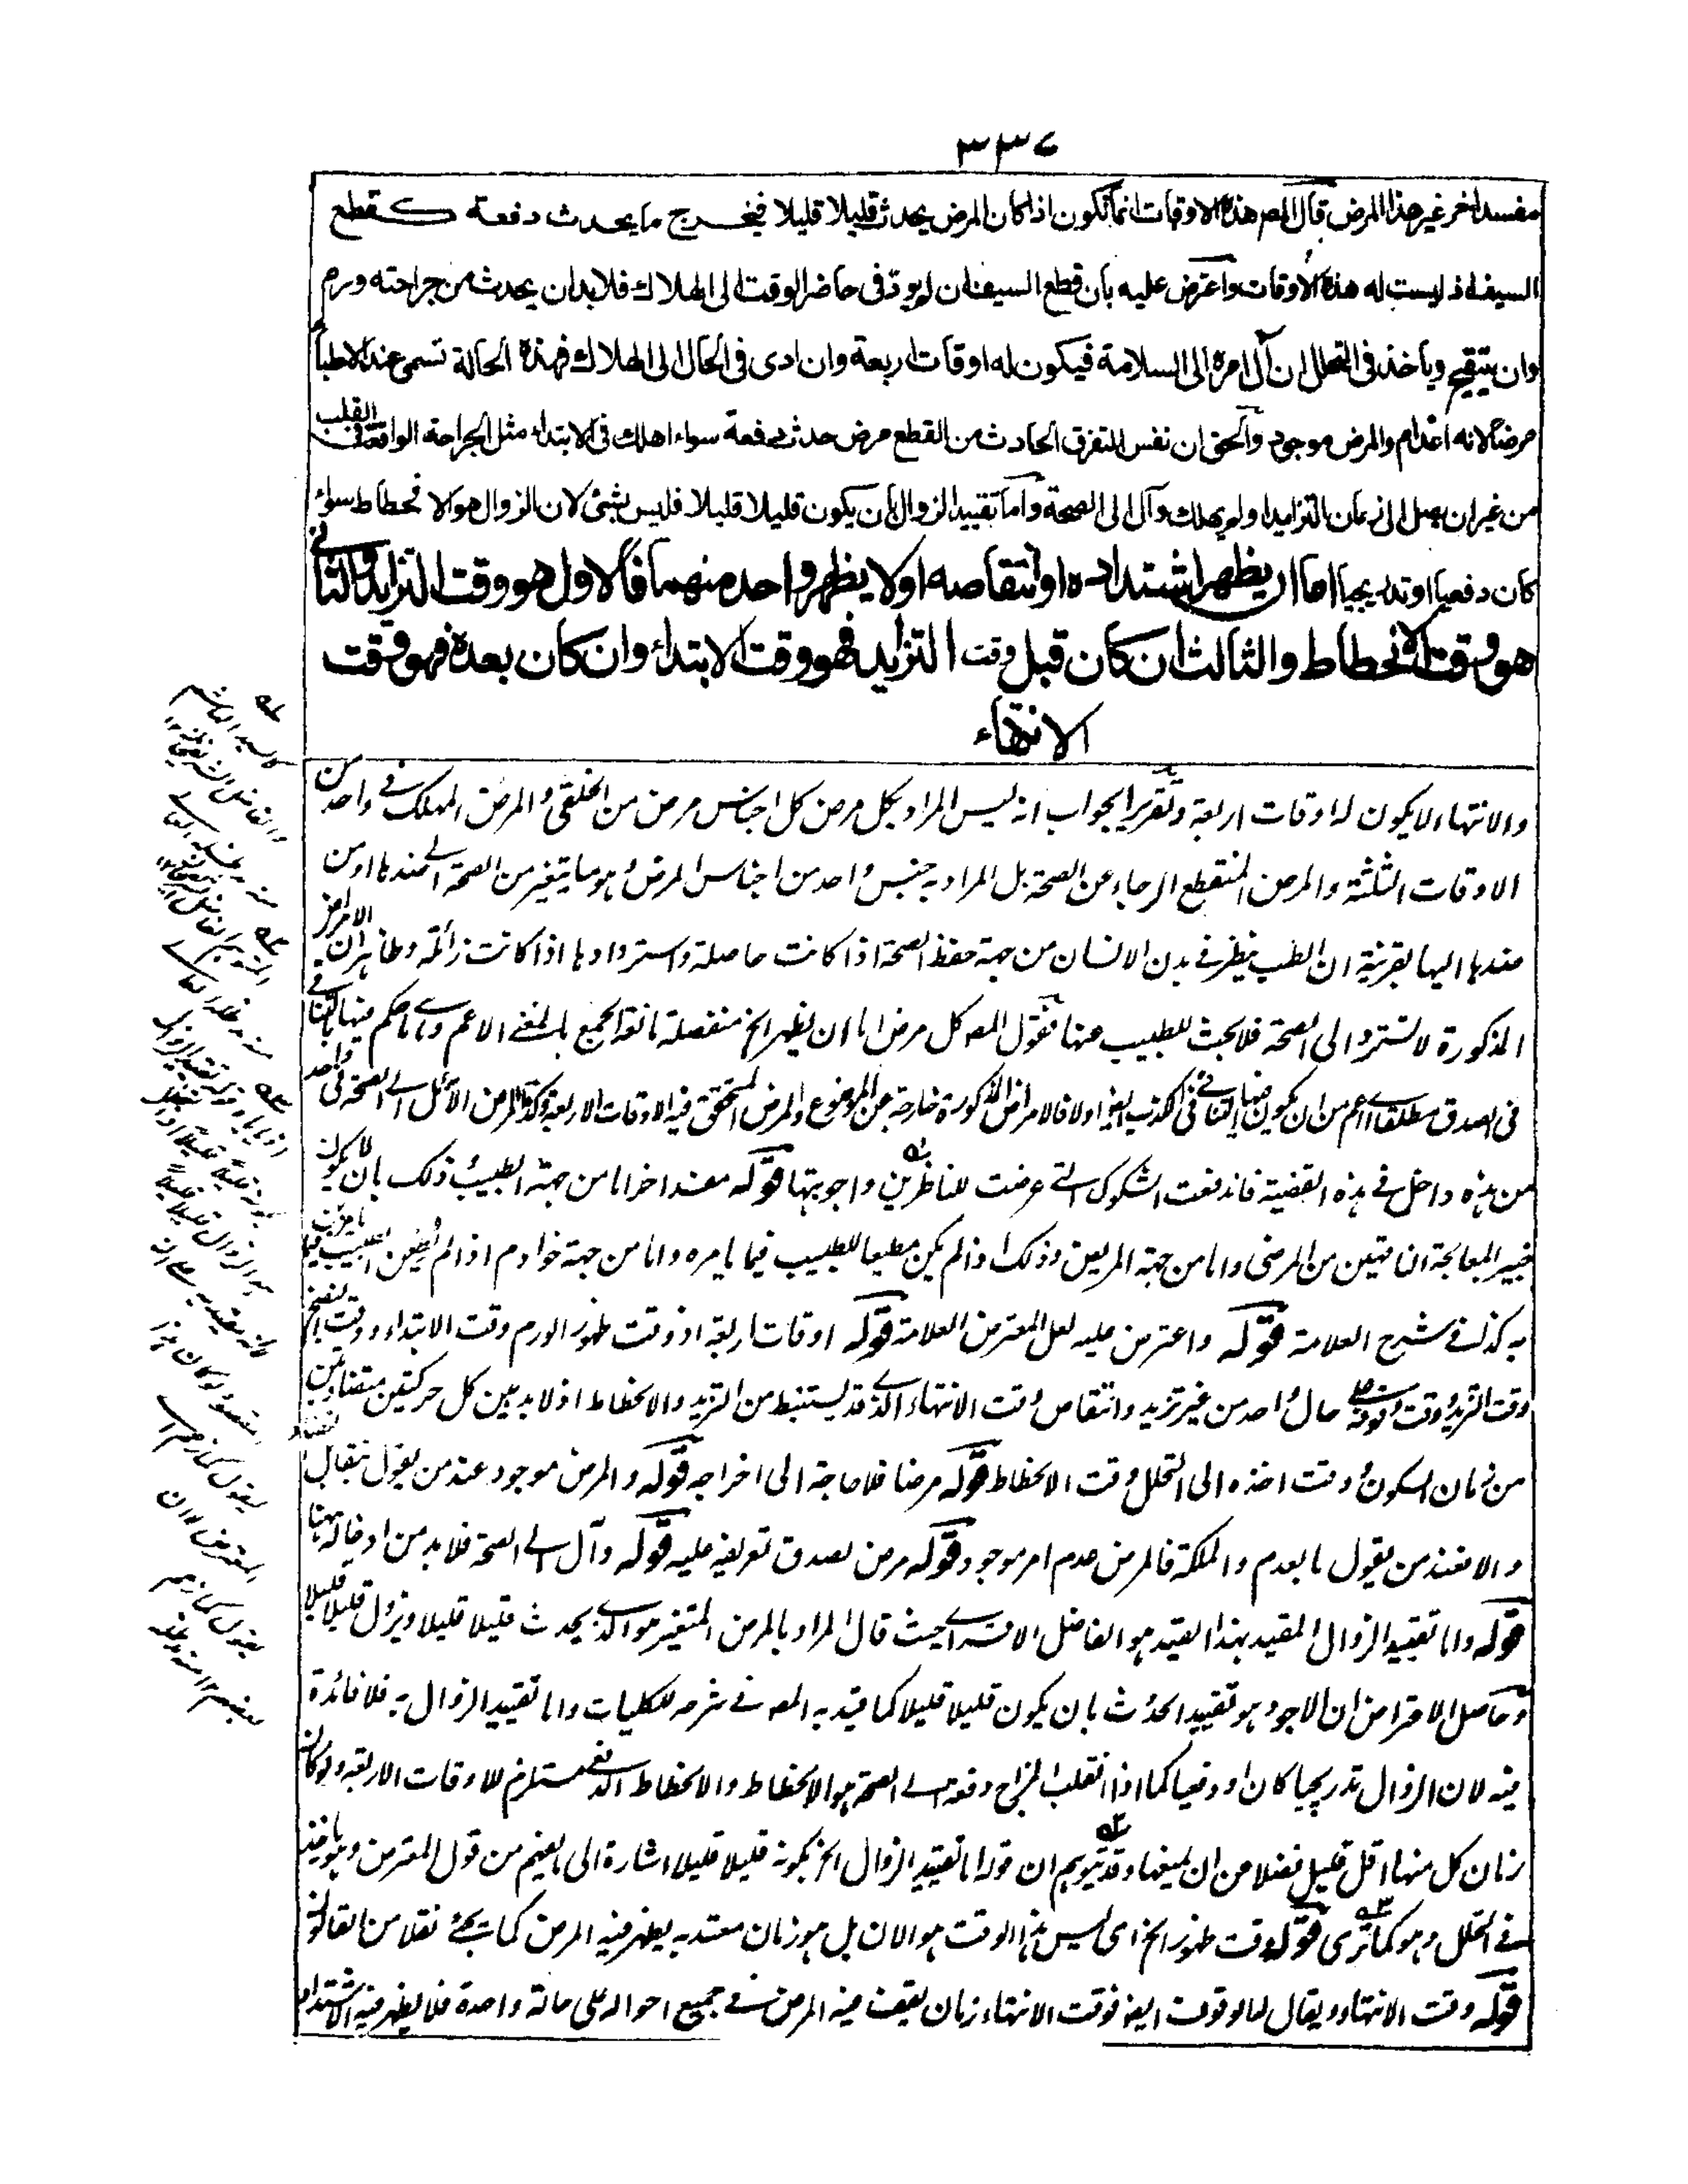 ٣٣٧
مفسد اخر غير هذا المرض قال المصر هذه الاوقات انما تكون اذا كان المرض يحدث قليلا قليلا فيخرج ما يحدث دفعة كقطع
السيف اذ ليست له هذه الاوقات واعترض عليه بأن قطع السيف ان لم يؤد فى حاضر الوقت الى الهلاك فلا بد ان يحدث من جراحته ورم
وان يتقيح ويأخذ فى التحلل ان آل امره الى السلامة فيكون له اوقات اربعة وان ادى فى الحال الى الهلاك فهذه الحالة تسمى عند الاطباء
مرضا لانه اعدام والمرض موجود والحق ان نفس التفرق الحادث من القطع مرض حدث دفعة سواء اهلك فى الابتداء مثل الجراحة الواقعة فى القلب
من غير ان يصل الى زمان التزايد او لم يهلك وآل الى الصحة واما تقييد الزوال بأن يكون قليلا قليلا فليس بشئ لان الزوال هو الانحطاط سواء
كان دفعيا او تدريجيا اما ان يظهر اشتداده او انتقاصه او لا يظهر واحد منهما فالاول هو وقت التزايد والثانى
هو وقت الانحطاط والثالث ان كان قبل وقت التزايد فهو وقت الابتداء وان كان بعده فهو وقت
الانتهاء
والانتهاء لا يكون له اوقات اربعة وتقرير الجواب انه ليس المراد بكل مرض كل اجناس مرض من الخلقى والمرض المهلك فى واحد من
الاوقات الثلثة والمرض المنقطع الرجاء عن الصحة بل المراد به جنس واحد من اجناس المرض وهو ما يتغير من الصحة الى ضدها او من
ضدها اليها بقرينة ان الطب ينظر فى بدن الانسان من جهة حفظ الصحة اذا كانت حاصلة واستردادها اذا كانت زائلة وظاهر ان الامراض
المذكورة لا تسترد الى الصحة فلا بحث للطبيب عنها فقول المصر كل مرض اما ان يظهر الخ منفصلة مانعة الجمع بالمعنى الاعم وهى ما حكم فيها بالتنافى
فى الصدق مطلقا اى اعم من ان يكون فيها التنافى فى الكذب ايضا اولا فالامراض المذكورة خارجة عن الموضوع والمرض المتحقق فيه الاوقات الاربعة وكذا المرض الآئل الى الصحة فى واحد
من هذه داخل فى هذه القضية فاندفعت الشكوك التى عرضت للناظرين واجوبتها قوله مفسد اخر اما من جهة الطبيب وذلك بان لا يكون
خبير المعالجة ان تهين من المرضى واما من جهة المريض وذلك اذ لم يكن مطيعا للطبيب فيما يامره واما من جهة خوادم اذ لم يطيعن الطبيب فيما يامرهن
به كذا فى شرح العلامة قوله واعترض عليه لعل المعترض العلامة قوله اوقات اربعة اذ وقت ظهور الورم وقت الابتداء ووقت النضج
وقت التزيد ووقت وقوفه على حال واحد من غير تزيد وانتقاص وقت الانتهاء الذى قد يستنبط من التزيد والانحطاط اذ لا بد بين كل حركتين متضادتين
من زمان السكون ووقت اخذه الى التحلل وقت الانحطاط قوله مرضا فلا حاجة الى اخراجه قوله والمرض موجود عند من يقول بتقابل التضاد
والا فعند من يقول بالعدم والملكة فالمرض عدم امر موجود قوله مرض يصدق تعريفه عليه قوله وآل الى الصحة فلا بد من ادخاله ههنا
قوله واما تقييد الزوال المقيد بهذا القيد هو الفاضل الاقسرائى حيث قال المراد بالمرض المتغير هو الذى يحدث قليلا قليلا ويزول قليلا قليلا
وحاصل الاعتراض ان الاجود هو تقييد الحدوث بان يكون قليلا قليلا كما قيد به المصر فى شرحه للكليات واما تقييد الزوال به فلا فائدة
فيه لان الزوال تدريجيا كان او دفعيا كما اذا انقلب المزاج دفعة الى الصحة هو الانحطاط والانحطاط الدفعى مستلزم للاوقات الاربعة ولو كان
زمان كل منها اقل قليل فضلا من ان ينفيها وقد يتوهم ان قوله اما تقييد الزوال الخ بكونه قليلا قليلا اشارة الى ما يفهم من قول المعترض وهو ياخذ
فى التحلل وهو كما ترى قوله وقت ظهور الخ اى ليس هذا الوقت هو الآن بل هو زمان معتد به يظهر فيه المرض كما يجئ نقلا من القانون
قوله وقت الانتهاء ويقال لها الوقوف ايضا فوقت الانتهاء زمان يقف فيه المرض فى جميع احواله على حالة واحدة فلا يظهر فيه الاشتداد